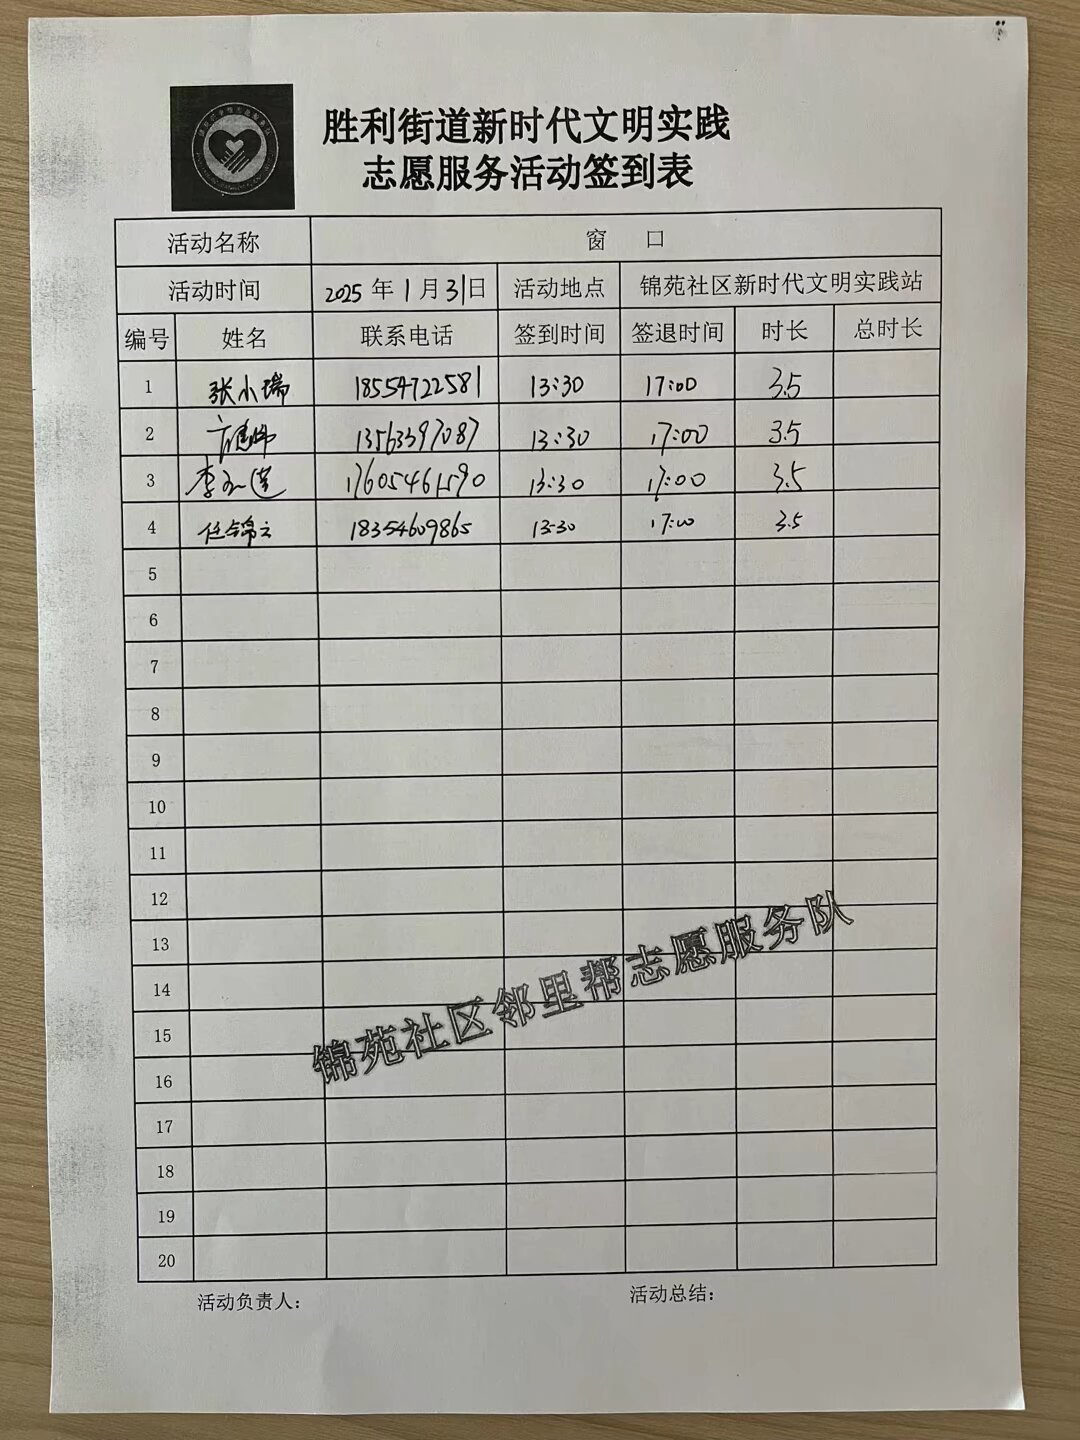 胜利街道新时代文明实践
志愿服务活动签到表
活动名称 窗 口
活动时间 2025年1月31日 活动地点 锦苑社区新时代文明实践站
编号 姓名 联系电话 签到时间 签退时间 时长 总时长
1 张小瑞 18554722581 13:30 17:00 3.5
2 13563397087 13:30 17:00 3.5
3 李 17605461590 13:30 17:00 3.5
4 任锦云 18354609865 13:30 17:00 3.5
5
6
7
8
9
10
11
12
13
14
15
16
17
18
19
20
锦苑社区邻里帮志愿服务队
活动负责人： 活动总结：